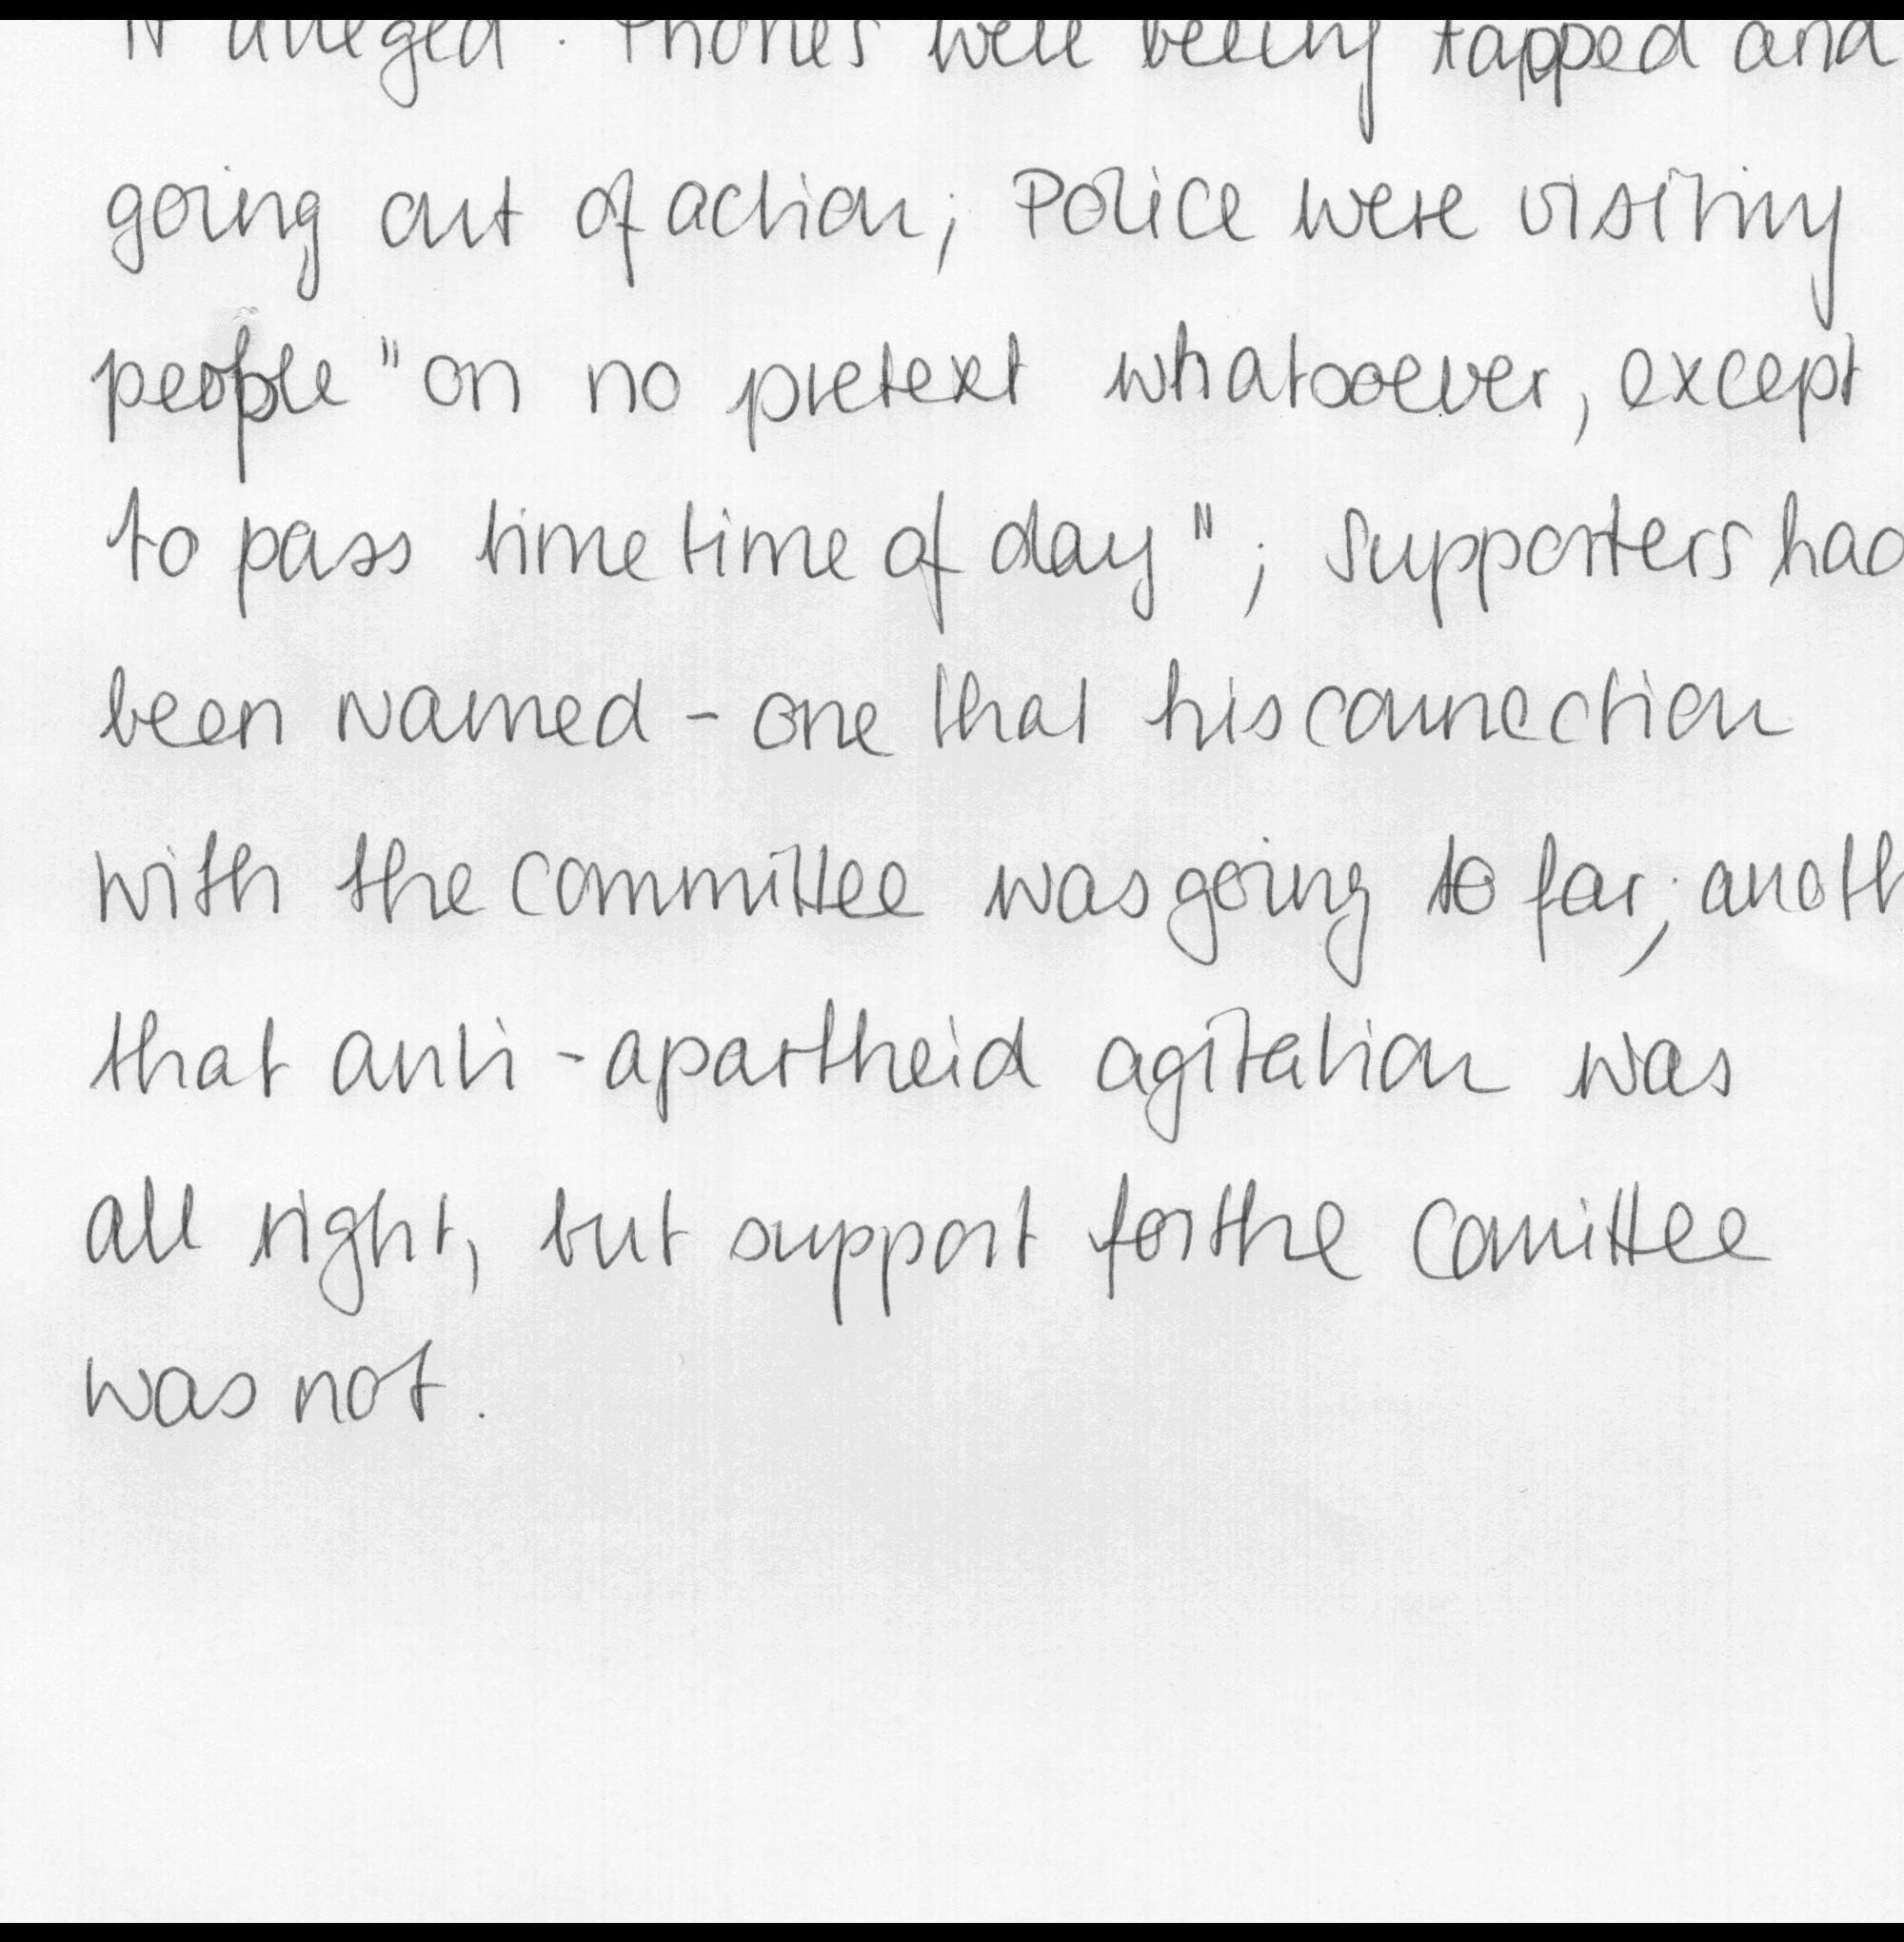 It alleged : Phones were being tapped and
going out of action; Police were visiting
people "on no pretext whatsoever, except
to pass time time of day"; supporters had
been named - one that his connection
with the committee was going to far; anoth
that anti-apartheid agitation was
all right, but support for the Comittee
was not.